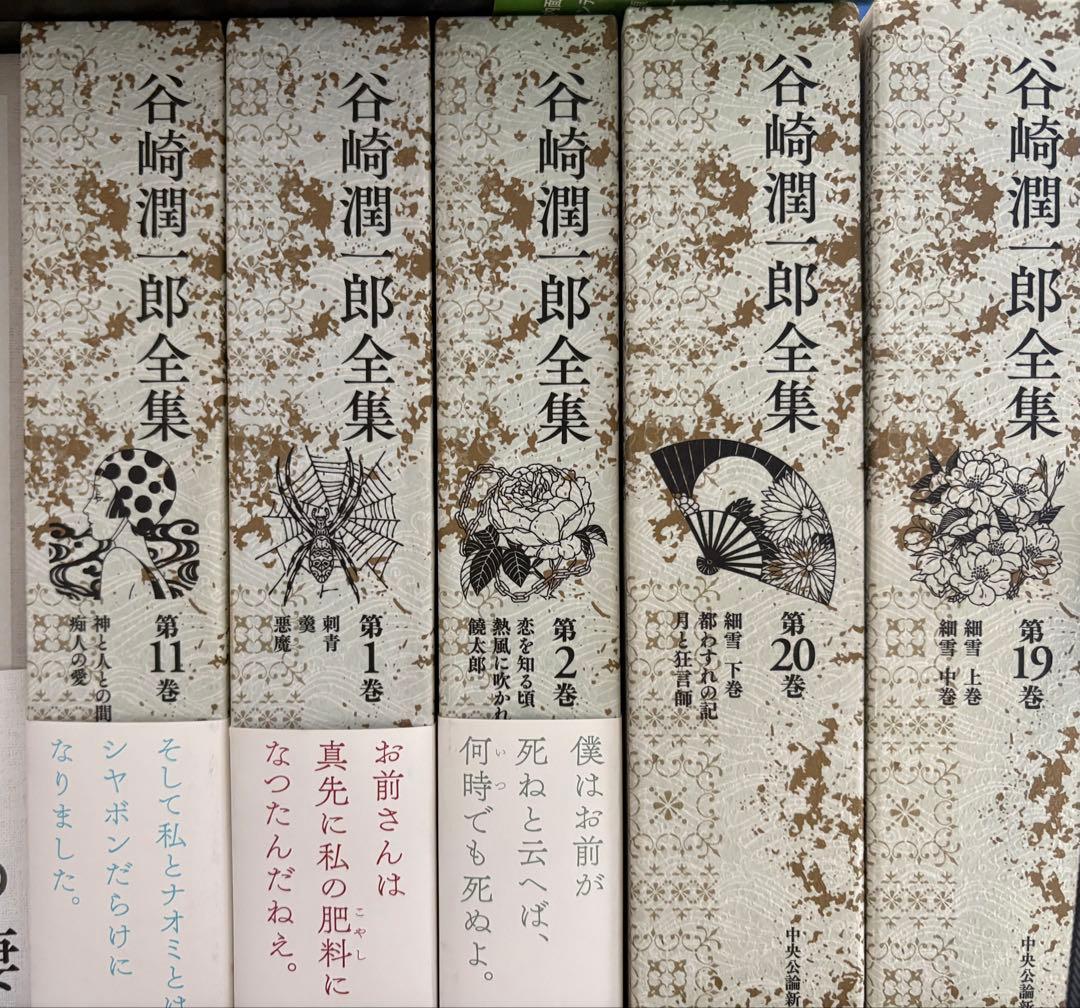 谷崎潤一郎全集
第11巻
神と人との間
痴人の愛
そして私とナオミとは
シヤボンだらけに
なりました。
谷崎潤一郎全集
第1巻
刺青
羹
悪魔
お前さんは
真先に私の肥料に
こやし
なつたんだねえ。
谷崎潤一郎全集
第2巻
恋を知る頃
熱風に吹かれ
饒太郎
僕はお前が
死ねと云へば、
何時でも死ぬよ。
いつ
谷崎潤一郎全集
第20巻
細雪 下巻
都わすれの記
月と狂言師
中央公論新
谷崎潤一郎全集
第19巻
細雪 上巻
細雪 中巻
中央公論新